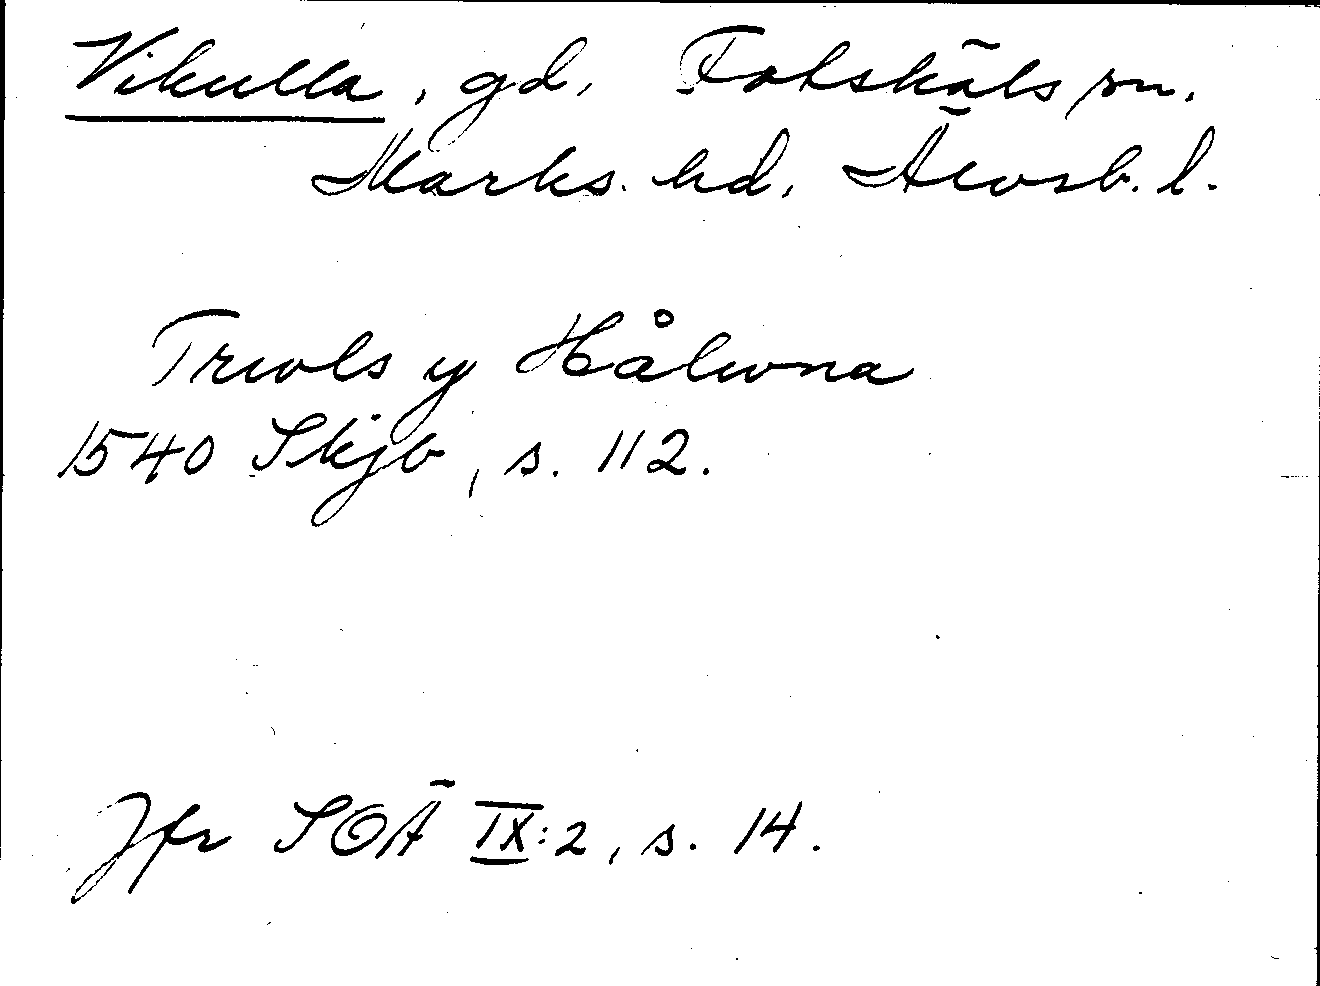 Vikulla, gd, Fotskäls sn.
Marks. hd, Älvsb. l.
Truols y Hålwna
1540 Skjb, s. 112.
Jfr SOÄ IX:2, s. 14.